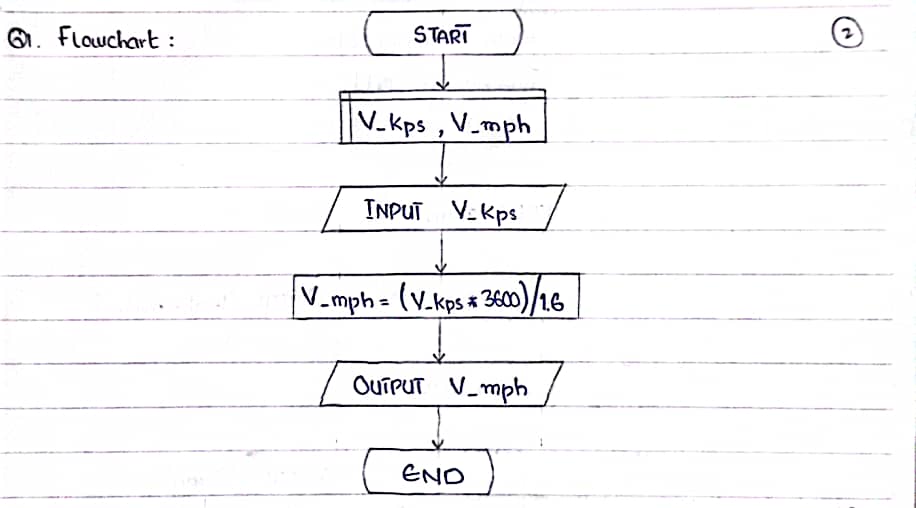 Q1. Flowchart :
START
2
V_kps , V_mph
INPUT V_kps
V_mph = (V_kps * 3600)/1.6
OUTPUT V_mph
END